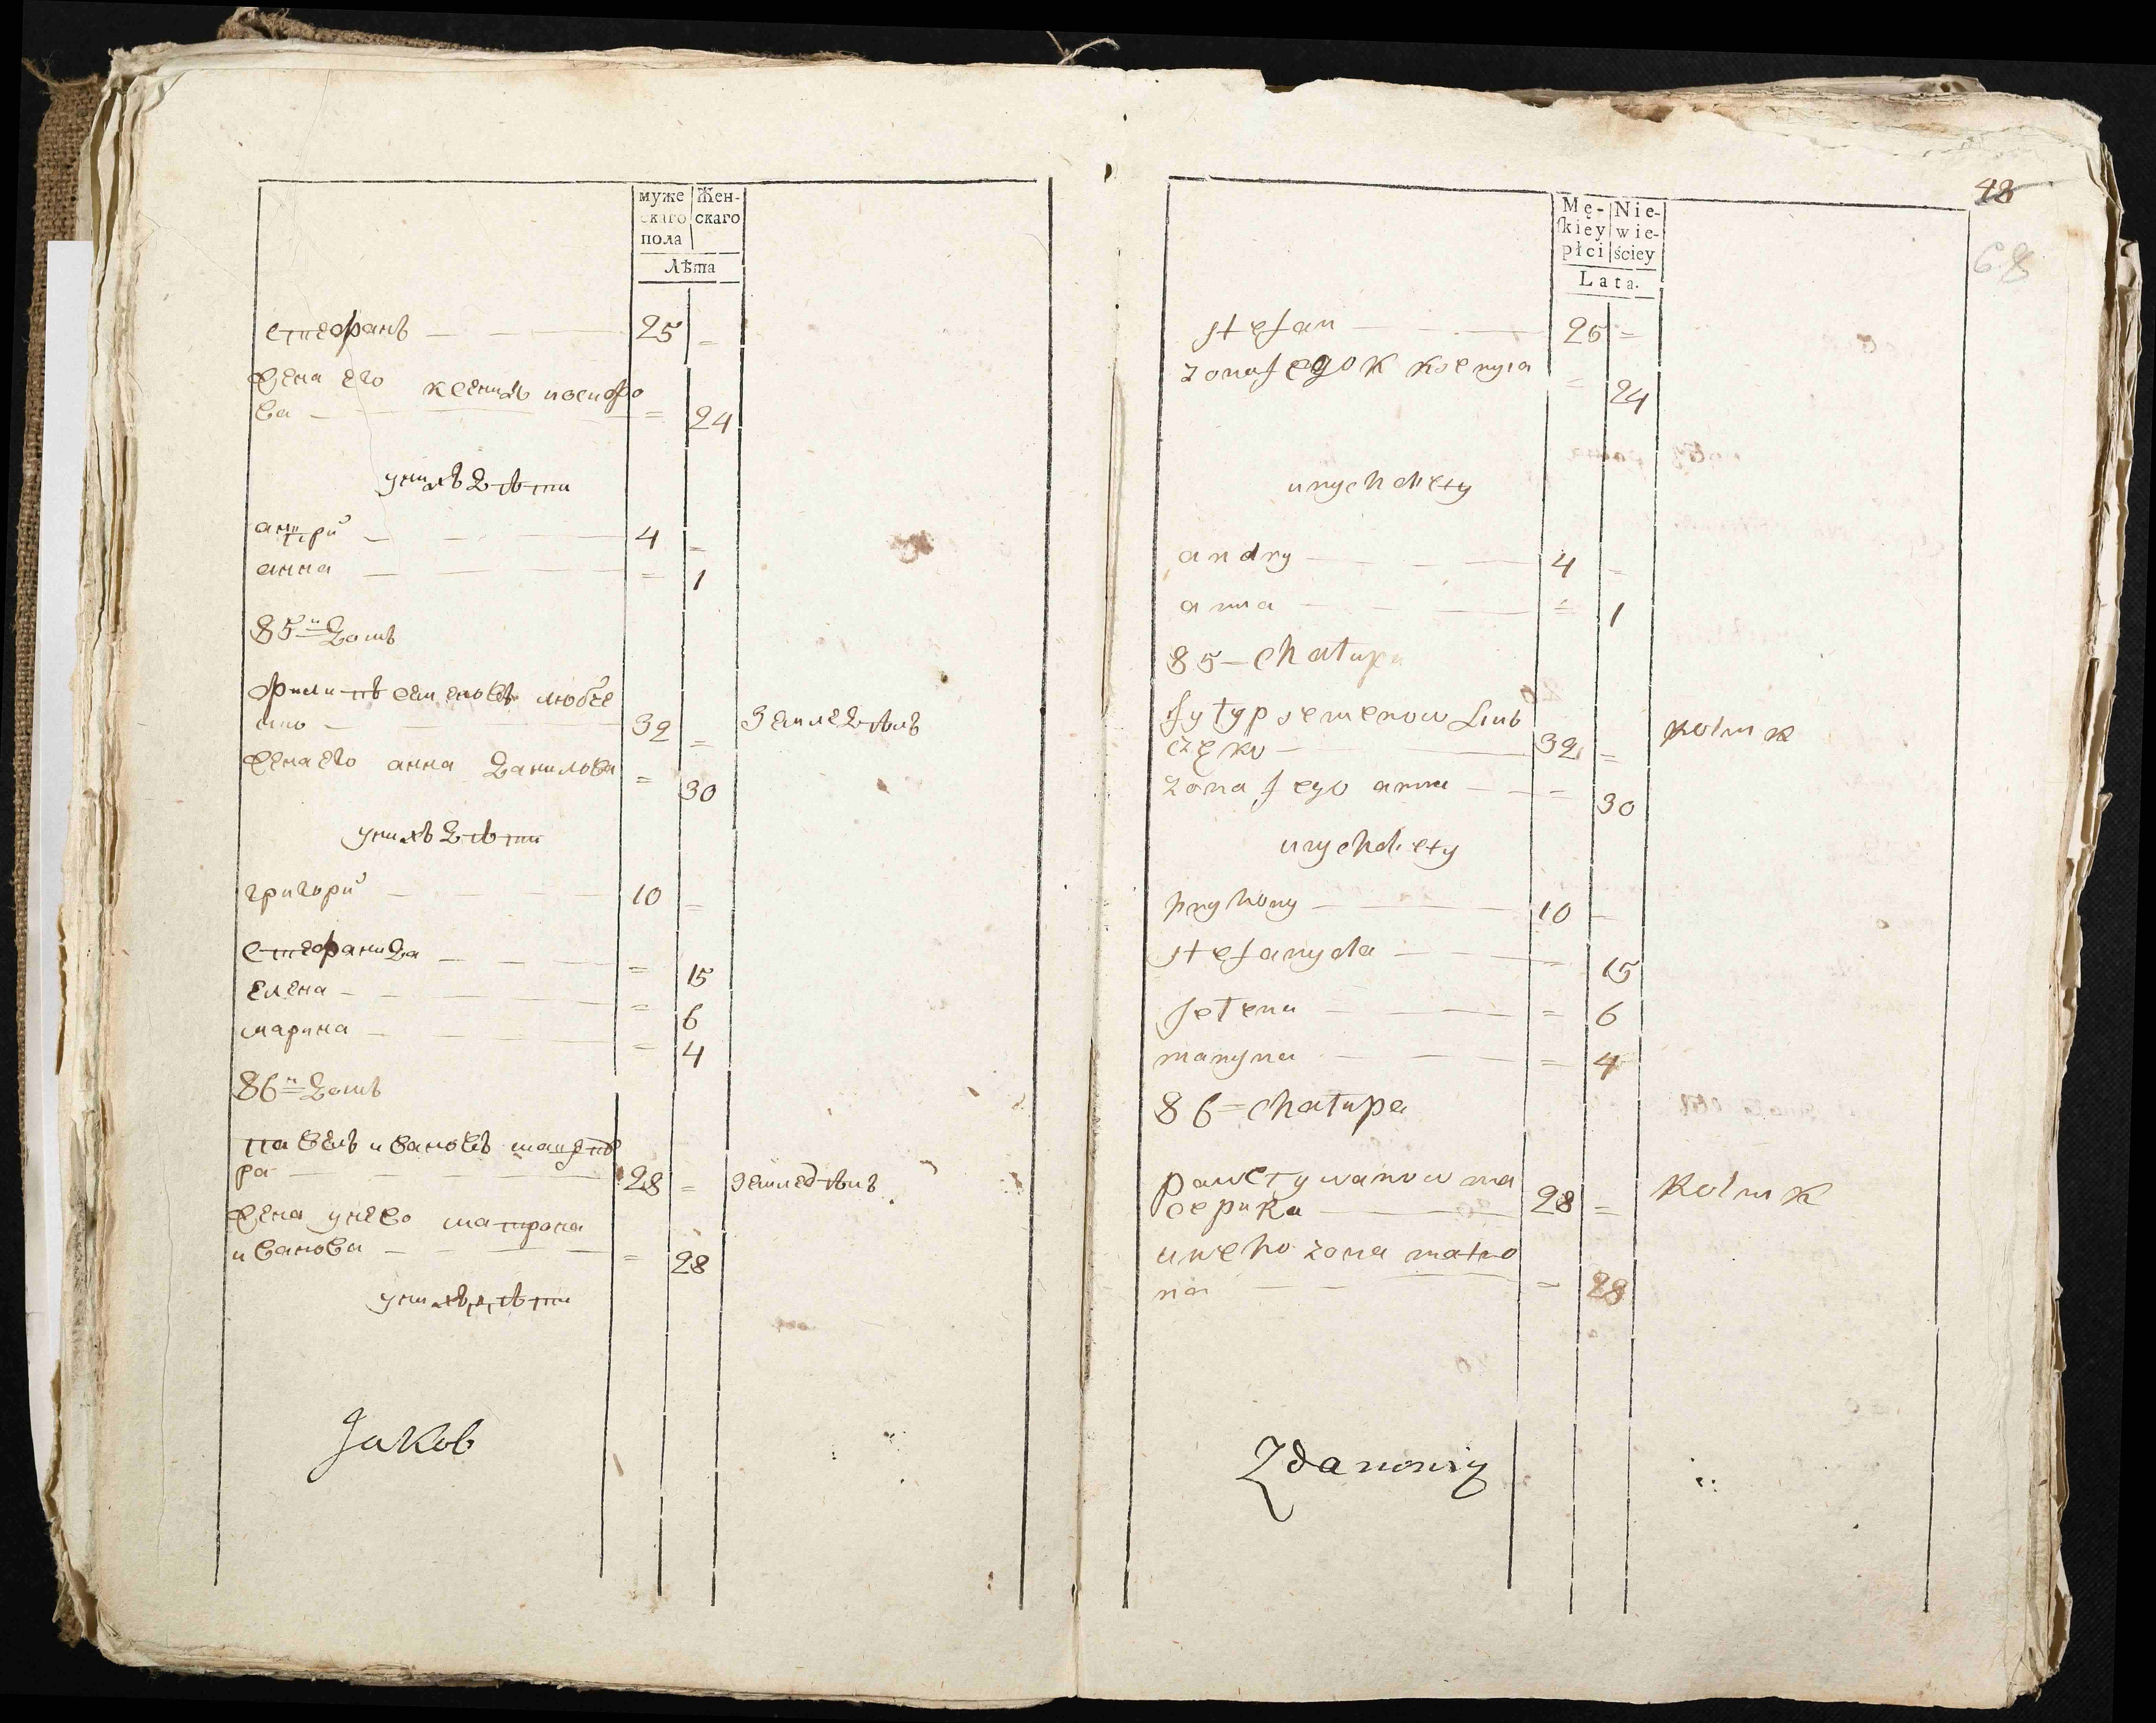 муже Жен-
скаго скаго
пола
Лѣта
стефанъ — — — 25 =
жена его ксения иосифо
ва — — = 24
у нихъ дѣти
андри — — — 4 =
анна — — — = 1
85й домъ
филипъ семеновъ любче
нко — — 32 = земледѣлъ
жена его анна данилова = 30
у нихъ дѣти
григори — — — 10 =
стефанида — — — = 15
елена — — — = 6
марина — — — = 4
86й домъ
павелъ ивановъ
ра — — — 28 = земледѣлъ
жена у него матрона
иванова — — — = 28
у нихъ дѣти
Jakob
48
68
Mę- Nie-
ſkiey wie-
płci ściey
Lata.
stefan — — 25 =
zona Jego K Ksenyia = 24
unych diety
andry — — — 4 =
anna — — — = 1
85 — chałupa
fyłyp semenow Liub
częko — — 32 = Rolnik
zona Jego anna — — = 30
unych diety
hryhory — — 10 —
stefanyda — — — = 15
Jełena — — — = 6
maryna — — — = 4
86 = chałupa
paweł ywanow ma
cepuRa — — 28 = Rolnik
uneho zona matro
na — — = 28
Zdanowicz